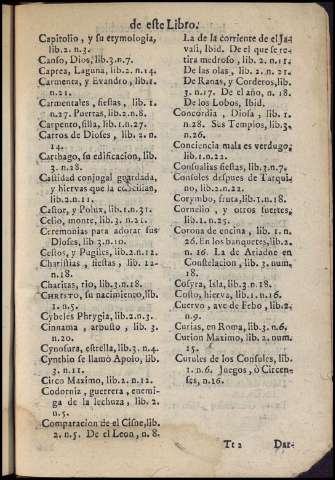 de este Libro.
Capitolio, y su etymologia,
lib.2. n.3.
Canso, Dios, lib.3.n.7.
Caprea, Laguna, lib.2. n.14.
Carmenta, y Evandro, lib.1.
n.21.
Carmentales, fiestas, lib. 1.
n.27. Puertas, lib.2.n.8.
Carpento, silla, lib.1.n.27.
Carros de Dioses, lib. 2. n.
14.
Carthago, su edificacion, lib.
3. n.28.
Castidad conjugal guardada,
y hiervas que la concilian,
lib.2.n.11.
Castor, y Polux, lib.1.n.31.
Celio, monte, lib. 3. n.21.
Ceremonias para adorar sus
Dioses, lib 3.n.10.
Cestos, y Pugiles, lib.2.n.12.
Charistias, fiestas, lib. 12.
n.18.
Charitas, rio, lib.3.n.18.
CHRISTO, su nacimiento, lib.
1. n.5.
Cybeles Phrygia, lib.2.n.3.
Cinnama, arbusto, lib. 3.
n.30.
Cynosura, estrella, lib.3. n.4.
Cynthio se llamò Apolo, lib.
3. n.11.
Circo Maximo, lib. 2. n.12.
Codorniz, guerrera, enemi-
ga de la lechuza, lib. 2.
n.5.
Comparacion de el Cisne, lib.
2. n.5. De el Leon, n. 8.
La de la corriente de el Ja-
vali, Ibid. De el que se re-
tira medroso, lib. 2. n.11.
De las olas, lib. 2. n. 21.
De Ranas, y Corderos, lib.
3. n.17. De el año, n. 18.
De los Lobos, Ibid.
Concordia, Diosa, lib. 1.
n.28. Sus Templos, lib.3.
n.26.
Conciencia mala es verdugo,
lib.1.n.22.
Consualias fiestas, lib.3.n.7.
Consules despues de Tarqui-
no, lib.2.n.22.
Corymbo, fruta, lib.1.n.18.
Cornelio, y otros fuertes,
lib.1. n.25.
Corona de encina, lib. 1. n.
26. En los banquetes, lib.2.
n. 16. La de Ariadne en
Constelacion, lib. 3. num.
18.
Cosyra, Isla, lib.3.n.18.
Costo, hierva, lib.1. n.16.
Cuervo, ave de Febo, lib.2.
n.9.
Curias, en Roma, lib.3. n.6.
Curion Maximo, lib.2. num.
15.
Curules de los Consules, lib.
1. n.6. Juegos, ò Circen-
ses, n.16.
Tt 2 Dar-